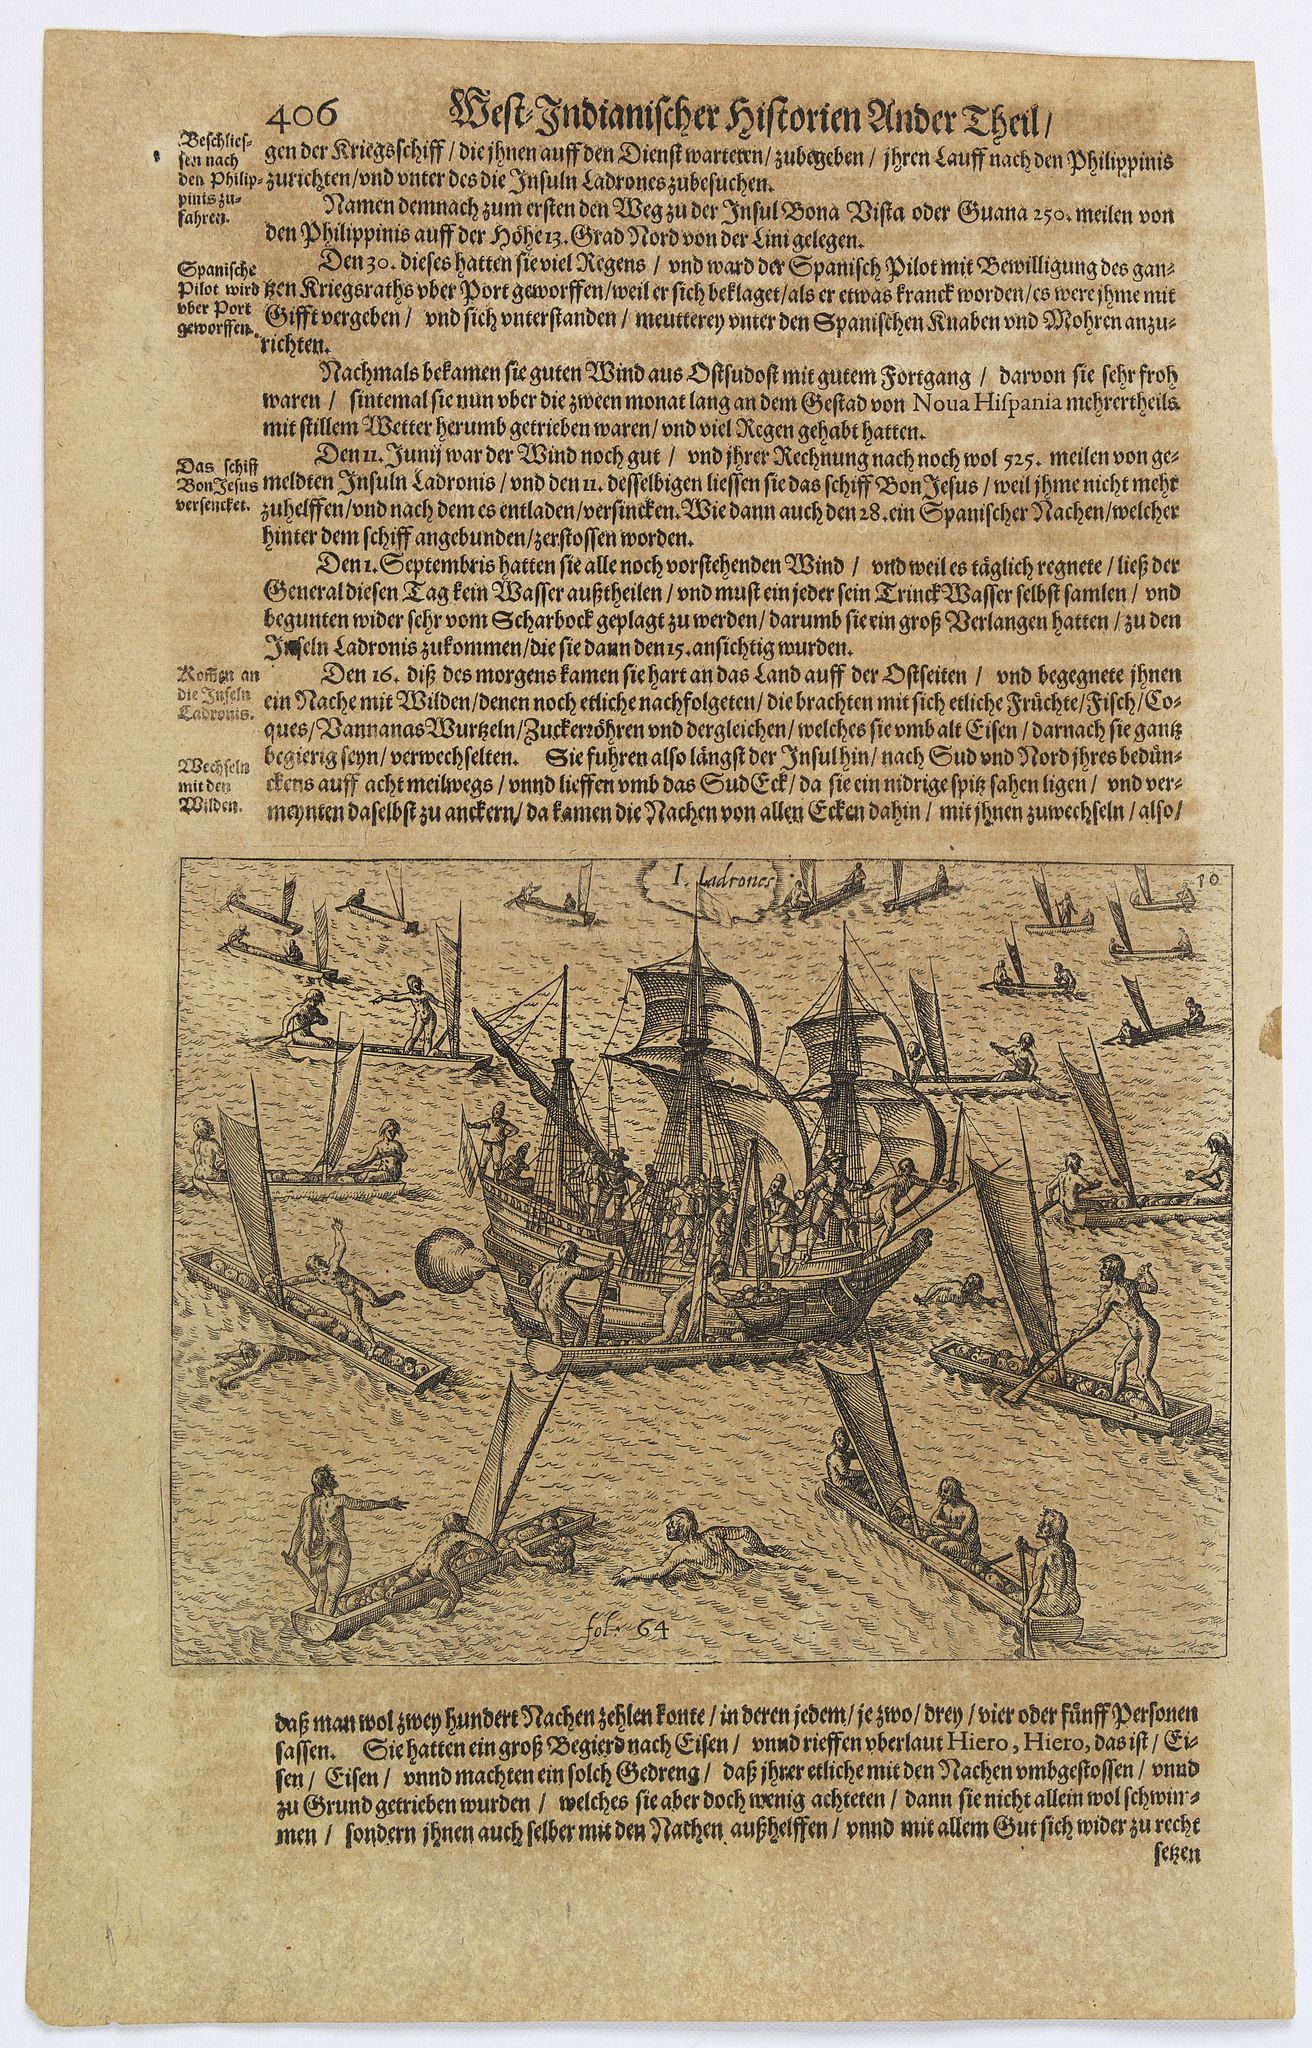 406 West-Indianischer Historien Ander Theil/
Beschlies-
sen nach
den Philip-
pinis zu-
fahren.
gen der Kriegsschiff/die jhnen auff den Dienst warteten/zubegeben/jhren Lauff nach den Philippinis
zurichten/vnd vnter des die Insuln Ladrones zubesuchen.
Namen demnach zum ersten den Weg zu der Insul Bona Vista oder Guana 250. meilen von
den Philippinis auff der Höhe 13. Grad Nord von der Lini gelegen.
Spanische
Pilot wird
vber Port
geworffen.
Den 30. dieses hatten sie viel Regens/ vnd ward der Spanisch Pilot mit Bewilligung des gan-
tzen Kriegsraths vber Port geworffen/weil er sich beklaget/als er etwas kranck worden/es were jhme mit
Gifft vergeben/ vnd sich vnterstanden/ meutterey vnter den Spanischen Knaben vnd Mohren anzu-
richten.
Nachmals bekamen sie guten Wind aus Ostsudost mit gutem Fortgang/ darvon sie sehr froh
waren/ sintemal sie nun vber die zween monat lang an dem Gestad von Noua Hispania mehrertheils
mit stillem Wetter herumb getrieben waren/ vnd viel Regen gehabt hatten.
Das schiff
Bon Jesus
versencket.
Den 11. Junij war der Wind noch gut/ vnd jhrer Rechnung nach noch wol 525. meilen von ge-
meldten Insuln Ladronis/ vnd den 11. desselbigen liessen sie das schiff Bon Jesus/ weil jhme nicht mehr
zuhelffen/vnd nach dem es entladen/versincken. Wie dann auch den 28. ein Spanischer Nachen/welcher
hinter dem schiff angebunden/zerstossen worden.
Den 1. Septembris hatten sie alle noch vorstehenden Wind/ vnd weil es täglich regnete/ ließ der
General diesen Tag kein Wasser außtheilen/ vnd must ein jeder sein Trinck Wasser selbst samlen/ vnd
begunten wider sehr vom Scharbock geplagt zu werden/ darumb sie ein groß Verlangen hatten/ zu den
Inseln Ladronis zukommen/die sie dann den 15. ansichtig wurden.
Kommen an
die Inseln
Ladronis.
Den 16. diß des morgens kamen sie hart an das Land auff der Ostseiten/ vnd begegnete jhnen
ein Nache mit Wilden/denen noch etliche nachfolgeten/ die brachten mit sich etliche Früchte/Fisch/Co-
ques/Vannanas Wurtzeln/Zuckerröhren vnd dergleichen/ welches sie vmb alt Eisen/ darnach sie gantz
begierig seyn/ verwechselten. Sie fuhren also längst der Insul hin/ nach Sud vnd Nord jhres bedün-
Wechseln
mit den
Wilden.
ckens auff acht meilwegs/ vnnd lieffen vmb das Sud Eck/ da sie ein nidrige spitz sahen ligen/ vnd ver-
meynten daselbst zu anckern/ da kamen die Nachen von allen Ecken dahin/ mit jhnen zuwechseln/ also/
I. Ladrones
10
fol: 64
daß man wol zwey hundert Nachen zehlen konte/ in deren jedem/ je zwo/ drey/ vier oder fünff Personen
sassen. Sie hatten ein groß Begierd nach Eisen/ vnnd rieffen vberlaut Hiero, Hiero, das ist/ Ei-
sen/ Eisen/ vnnd machten ein solch Gedreng/ daß jhrer etliche mit den Nachen vmbgestossen/ vnnd
zu Grund getrieben wurden/ welches sie aber doch wenig achteten/ dann sie nicht allein wol schwim-
men/ sondern jhnen auch selber mit den Nachen außhelffen/ vnnd mit allem Gut sich wider zu recht
setzen